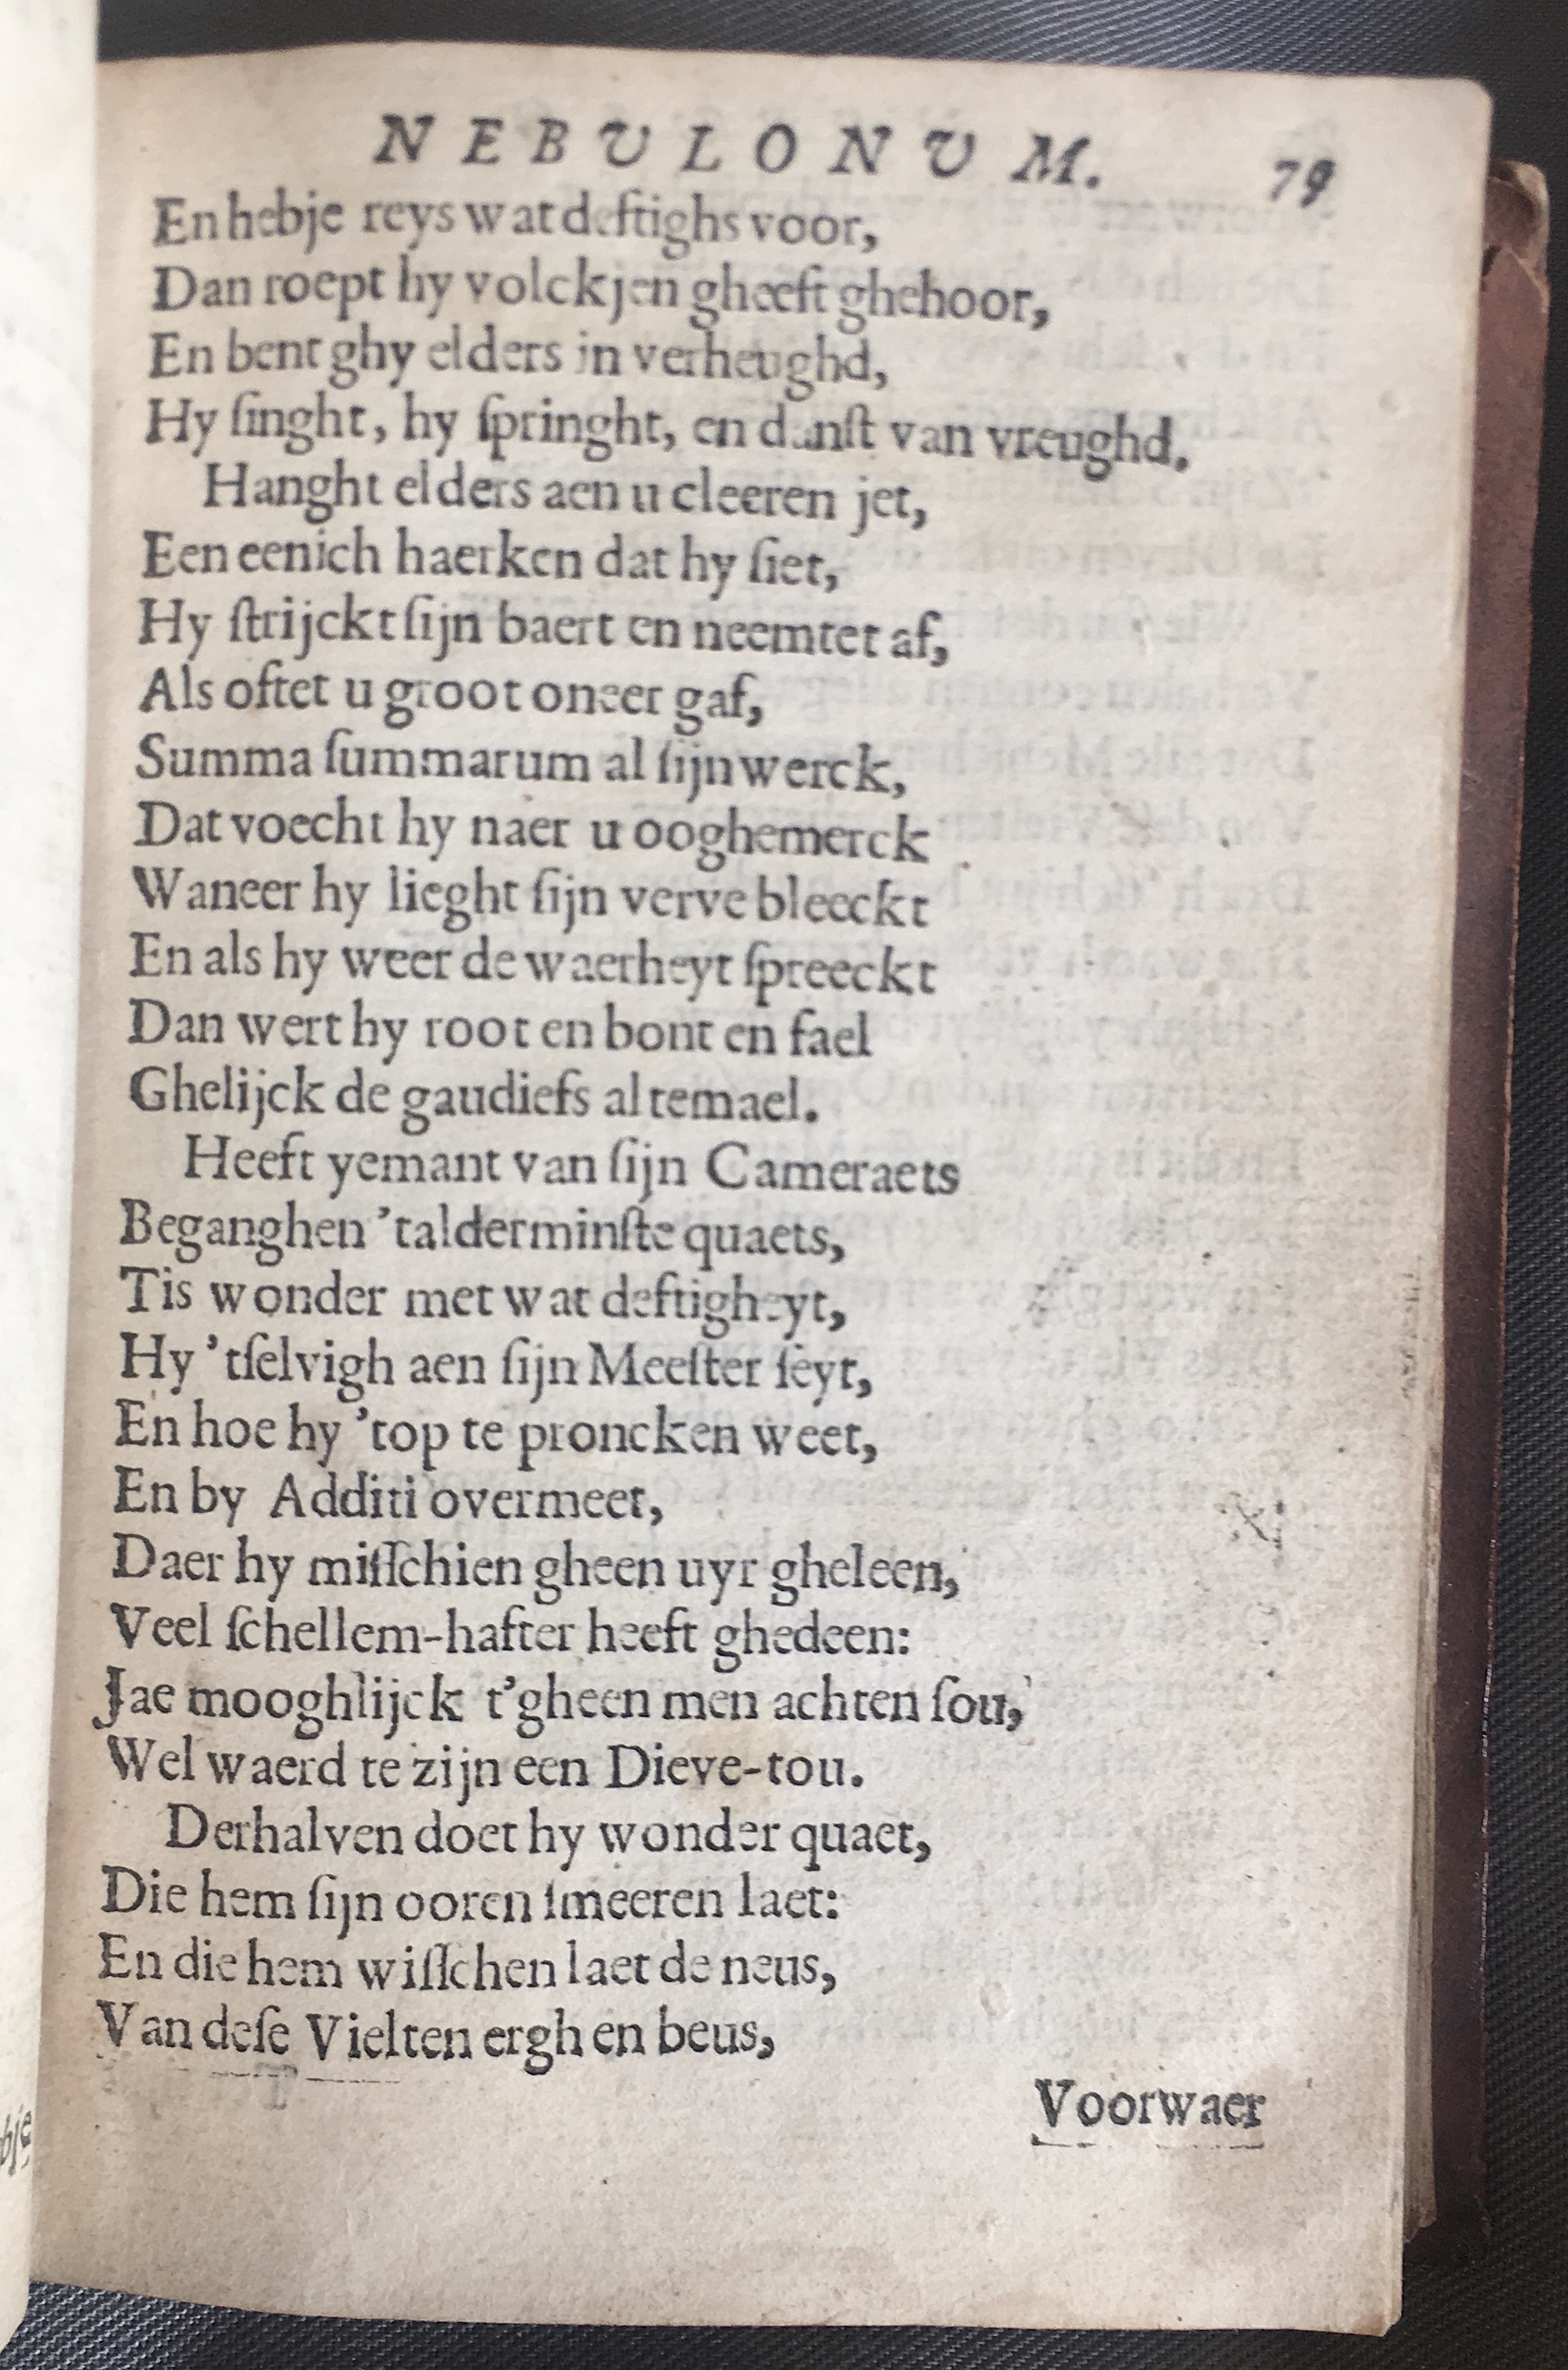 NEBULONUM. 79
En hebje reys wat deftighs voor,
Dan roept hy volckjen gheeft ghehoor,
En bent ghy elders in verheughd,
Hy ſinght, hy ſpringht, en danſt van vreughd.
Hanght elders aen u cleeren jet,
Een eenich haerken dat hy ſiet,
Hy ſtrijckt ſijn baert en neemtet af,
Als oftet u groot oneer gaf,
Summa ſummarum al ſijn werck,
Dat voecht hy naer u ooghemerck
Waneer hy lieght ſijn verve bleeckt
En als hy weer de waerheyt ſpreeckt
Dan wert hy root en bont en fael
Ghelijck de gaudiefs altemael.
Heeft yemant van ſijn Cameraets
Beganghen 'talderminſte quaets,
Tis wonder met wat deftigheyt,
Hy 'tſelvigh aen ſijn Meeſter ſeyt,
En hoe hy 'top te proncken weet,
En by Additi overmeet,
Daer hy miſſchien gheen uyr gheleen,
Veel ſchellem-hafter heeft ghedeen:
Jae mooghlijck t'gheen men achten ſou,
Wel waerd te zijn een Dieve-tou.
Derhalven doet hy wonder quaet,
Die hem ſijn ooren ſmeeren laet:
En die hem wiſſchen laet de neus,
Van deſe Vielten ergh en beus,
Voorwaer
bje